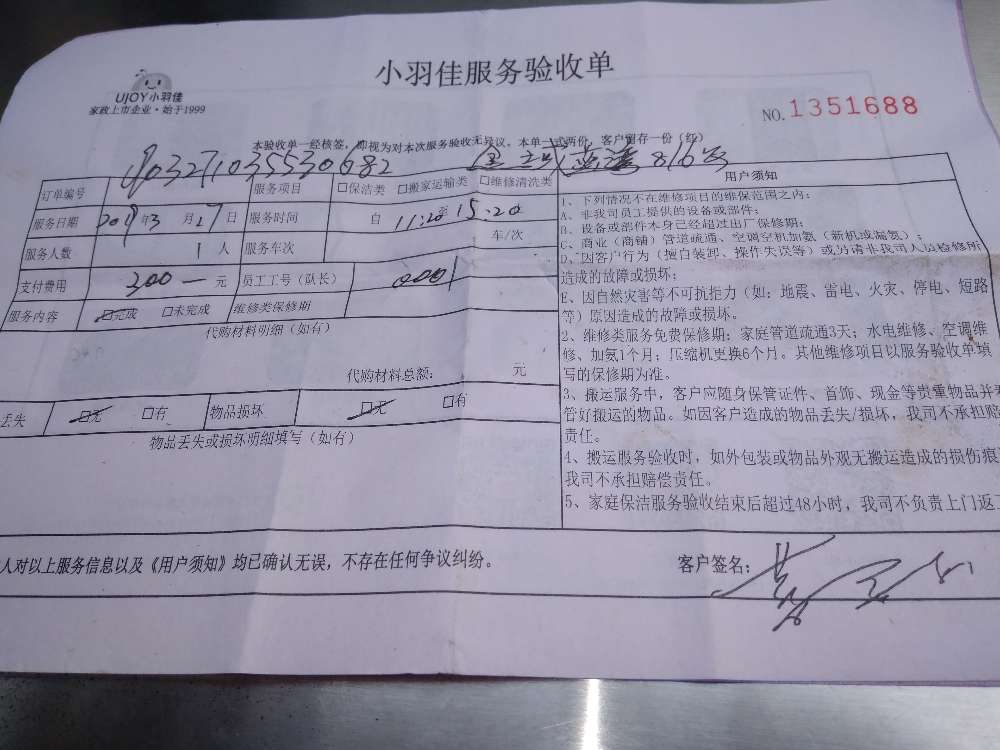 小羽佳服务验收单
UJOY小羽佳
家政上市企业·始于1999
NO.1351688
本验收单一经核签，即视为对本次服务验收无异议。本单一式两份，客户留存一份（红）
订单编号 9032710355530682
服务项目 □保洁类 □搬家运输类 □维修清洗类
服务日期 2019年3月27日 服务时间 自 11:20 至 15:20
服务人数 1 人 服务车次 车/次
支付费用 200— 元 员工工号（队长） 0001
服务内容 □完成 □未完成 维修类保修期
代购材料明细（如有）
代购材料总额： 元
丢失 □无 □有 物品损坏 □无 □有
物品丢失或损坏明细填写（如有）
用户须知
1、下列情况不在维修项目的维保范围之内：
A、非我司员工提供的设备或部件；
B、设备或部件本身已经超过出厂保修期；
C、商业（商铺）管道疏通、空调空机加氨（新机或漏氨）；
D、因客户行为（擅自装卸、操作失误等）或另请非我司人员检修所
造成的故障或损坏；
E、因自然灾害等不可抗拒力（如：地震、雷电、火灾、停电、短路
等）原因造成的故障或损坏。
2、维修类服务免费保修期：家庭管道疏通3天；水电维修、空调维
修、加氨1个月；压缩机更换6个月。其他维修项目以服务验收单填
写的保修期为准。
3、搬运服务中，客户应随身保管证件、首饰、现金等贵重物品并看
管好搬运的物品。如因客户造成的物品丢失/损坏，我司不承担赔
责任。
4、搬运服务验收时，如外包装或物品外观无搬运造成的损伤痕
我司不承担赔偿责任。
5、家庭保洁服务验收结束后超过48小时，我司不负责上门返工
人对以上服务信息以及《用户须知》均已确认无误，不存在任何争议纠纷。
客户签名：